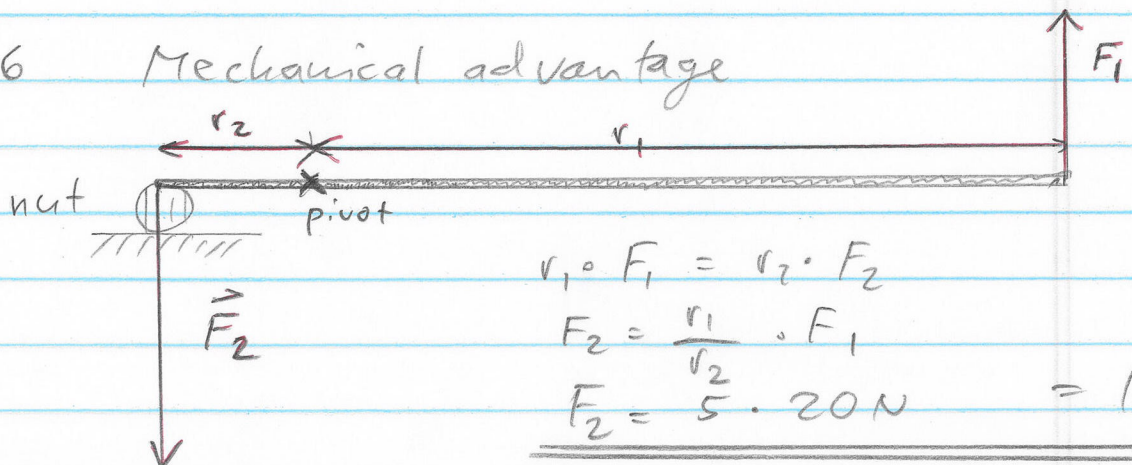 6 Mechanical advantage
F₁
r₂ r₁
nut
pivot
r₁ · F₁ = r₂ · F₂
F⃗₂
F₂ = r₁/r₂ · F₁
F₂ = 5 · 20N =